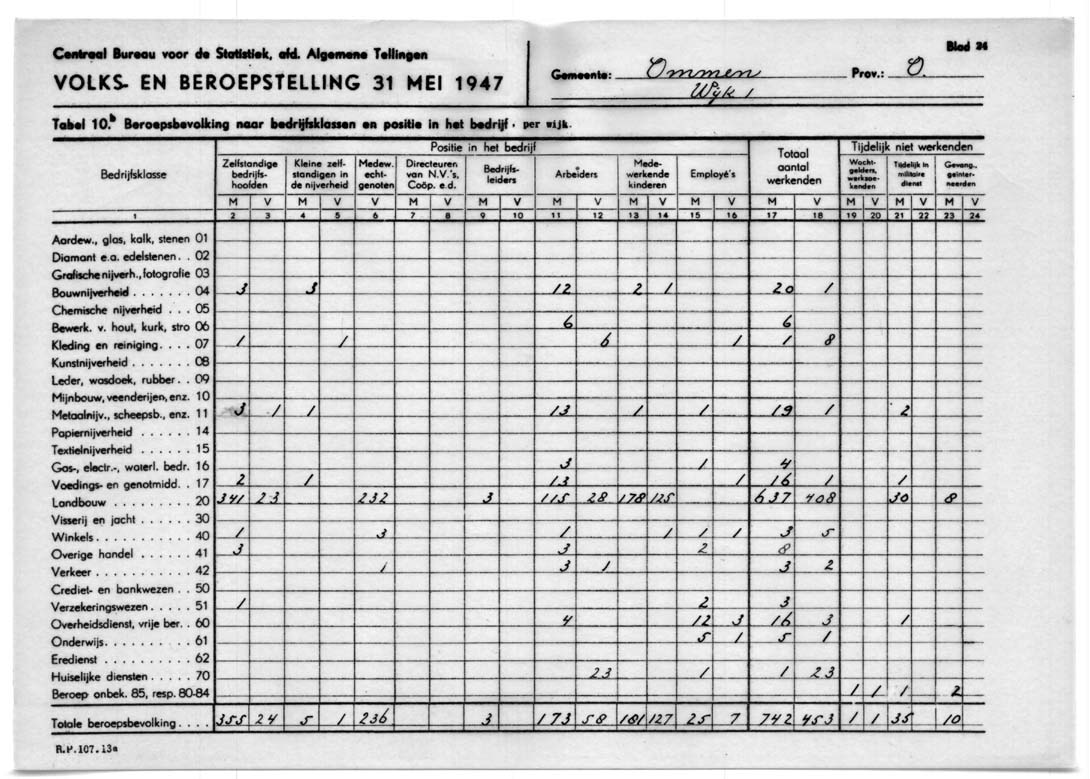 Centraal Bureau voor de Statistiek, afd. Algemene Tellingen
Blad 24
VOLKS- EN BEROEPSTELLING 31 MEI 1947
Gemeente: Ommen Prov.: O.
Wijk 1
Tabel 10.b Beroepsbevolking naar bedrijfsklassen en positie in het bedrijf, per wijk.
Bedrijfsklasse
Positie in het bedrijf
Zelfstandige bedrijfs-hoofden
Kleine zelf-standigen in de nijverheid
Medew. echt-genoten
Directeuren van N.V.'s, Coöp. e.d.
Bedrijfs-leiders
Arbeiders
Mede-werkende kinderen
Employé's
Totaal aantal werkenden
Tijdelijk niet werkenden
Wacht-gelders, werkzoe-kenden
Tijdelijk in militaire dienst
Gevang., geïnter-neerden
M V M V V M V M V M V M V M V M V M V M V M V
1 2 3 4 5 6 7 8 9 10 11 12 13 14 15 16 17 18 19 20 21 22 23 24
Aardew., glas, kalk, stenen 01
Diamant e.a. edelstenen. . 02
Grafische nijverh., fotografie 03
Bouwnijverheid . . . . . . . 04 3 3 12 2 1 20 1
Chemische nijverheid . . . 05
Bewerk. v. hout, kurk, stro 06 6 6
Kleding en reiniging. . . . 07 1 1 6 1 1 8
Kunstnijverheid . . . . . . . 08
Leder, wasdoek, rubber. . 09
Mijnbouw, veenderijen, enz. 10
Metaalnijv., scheepsb., enz. 11 3 1 1 13 1 1 19 1 2
Papiernijverheid . . . . . . 14
Textielnijverheid . . . . . . 15
Gas-, electr.-, waterl. bedr. 16 3 1 4
Voedings- en genotmidd. . 17 2 1 13 1 16 1 1
Landbouw . . . . . . . . . 20 341 23 232 3 115 28 178 125 637 408 30 8
Visserij en jacht . . . . . . 30
Winkels . . . . . . . . . . . 40 1 3 1 1 1 1 3 5
Overige handel . . . . . . 41 3 3 2 8
Verkeer . . . . . . . . . . . 42 1 3 1 3 2
Crediet- en bankwezen . . 50
Verzekeringswezen . . . . . 51 1 2 3
Overheidsdienst, vrije ber. . 60 4 12 3 16 3 1
Onderwijs. . . . . . . . . . 61 5 1 5 1
Eredienst . . . . . . . . . . 62
Huiselijke diensten . . . . . 70 23 1 1 23
Beroep onbek. 85, resp. 80-84 1 1 1 2
Totale beroepsbevolking . . . . 355 24 5 1 236 3 173 58 181 127 25 7 742 453 1 1 35 10
R.P.107.13a